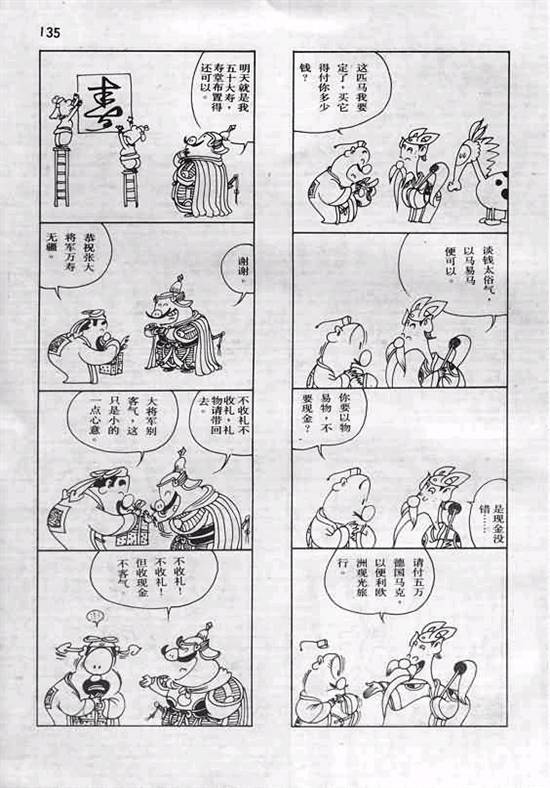 135
这匹马我要
定了，买它
得付你多少
钱？
谈钱太俗气，
以马易马
便可以。
你要以物
易物，不
要现金？
是现金没
错……
请付五万
德国马克，
以便利欧
洲观光旅
行。
明天就是我
五十大寿，
寿堂布置得
还可以。
寿
恭祝张大
将军万寿
无疆。
谢谢。
不收礼不
收礼，礼
物请带回
去。
大将军别
客气，这
只是小的
一点心意。
不收礼！
不收礼！
但收现金
不客气。